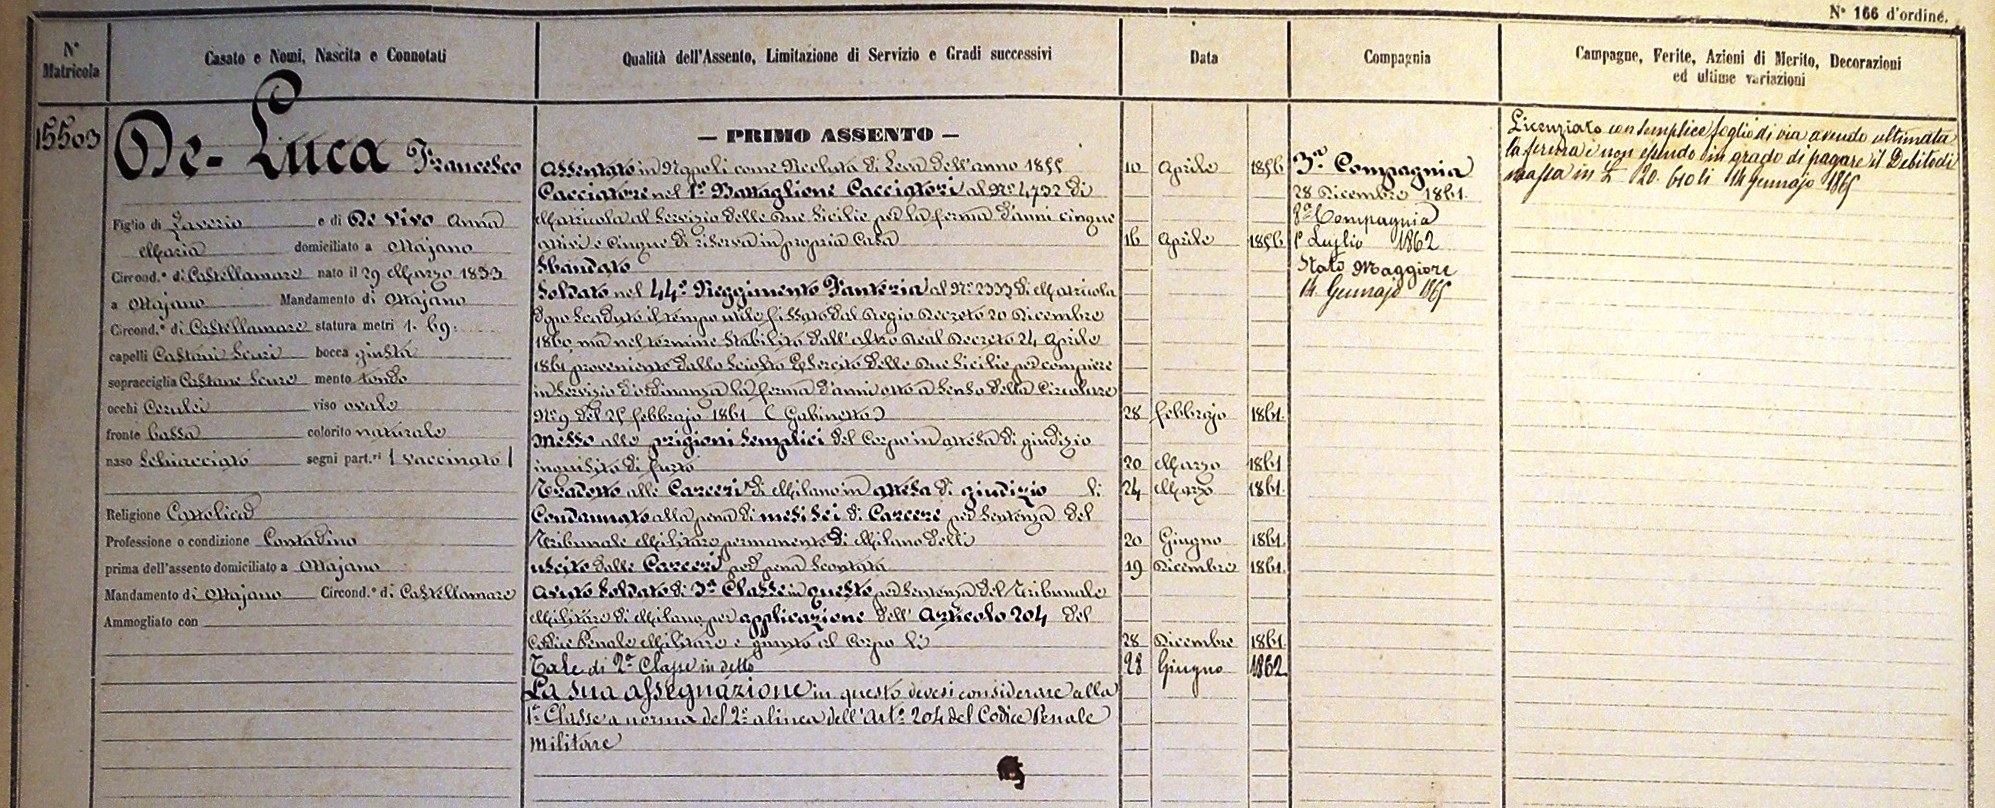 Nº 166 d'ordine.
Nº Matricola
Casato e Nomi, Nascita e Connotati
Qualità dell'Assento, Limitazione di Servizio e Gradi successivi
Data
Compagnia
Campagne, Ferite, Azioni di Merito, Decorazioni
ed ultime variazioni
15503
De-Luca Francesco
Figlio di Saverio e di De Vivo Anna
Maria domiciliato a Ottajano
Circond.º di Castellamare nato il 29 Marzo 1833
a Ottajano Mandamento di Ottajano
Circond.º di Castellamare statura metri 1. 69.
capelli Castani Scuri bocca giusta
sopracciglia Castane Scure mento tondo
occhi Cerulei viso ovale
fronte bassa colorito naturale
naso Schiacciato segni part.ri ( vaccinato )
Religione Cattolica
Professione o condizione Contadino
prima dell'assento domiciliato a Ottajano
Mandamento di Ottajano Circond.º di Castellamare
Ammogliato con
— PRIMO ASSENTO —
Assentato in Napoli come Recluta di Leva dell'anno 1855 10 Aprile 1856
Cacciatore nel 1º Battaglione Cacciatori al Nº 4732 di
Matricola al Servizio delle Due Sicilie per la ferma d'anni cinque
attivi e Cinque di riserva in propria Casa 16 Aprile 1856
Sbandato
Soldato nel 44º Reggimento Fanteria al Nº 2333 di Matricola
dopo scaduto il tempo utile fissato dal Regio Decreto 20 Dicembre
1860, ma nel termine stabilito dall'altro Real Decreto 24 Aprile
1861 proveniente dallo Sciolto Esercito delle Due Sicilie per compiere
in Servizio d'ordinanza la ferma d'anni otto a Senso della Circolare
Nº 9 del 25 febbrajo 1861 ( Gabinetto ) 28 febbrajo 1861.
Messo alle prigioni Semplici del Corpo in attesa di giudizio
inquisito di furto 20 Marzo 1861
Tradotto alle Carceri di Milano in attesa di giudizio li 24 Marzo 1861.
Condannato alla pena di mesi Sei di Carcere per Sentenza del
Tribunale Militare permanente di Milano delli 20 Giugno 1861.
uscito dalle Carceri per pena Scontata 19 Dicembre 1861.
Avuto Soldato di 3ª Classe in questo per Sentenza del Tribunale
Militare di Milano per applicazione dell'Articolo 204 del
Codice Penale Militare e giunto al Corpo li 28 Dicembre 1861.
Tale di 2ª Classe in detto 28 Giugno 1862
La sua assegnazione in questo devesi considerare alla
1ª Classe a norma del 2º alinea dell'Artº 204 del Codice Penale
Militare
3ª Compagnia
28 Dicembre 1861.
8ª Compagnia
1º Luglio 1862
Stato Maggiore
14 Gennajo 1865
Licenziato con semplice foglio di via avendo ultimata
la ferma e non essendo in grado di pagare il Debito di
massa in £ 20. 61 oli 14 Gennajo 1865